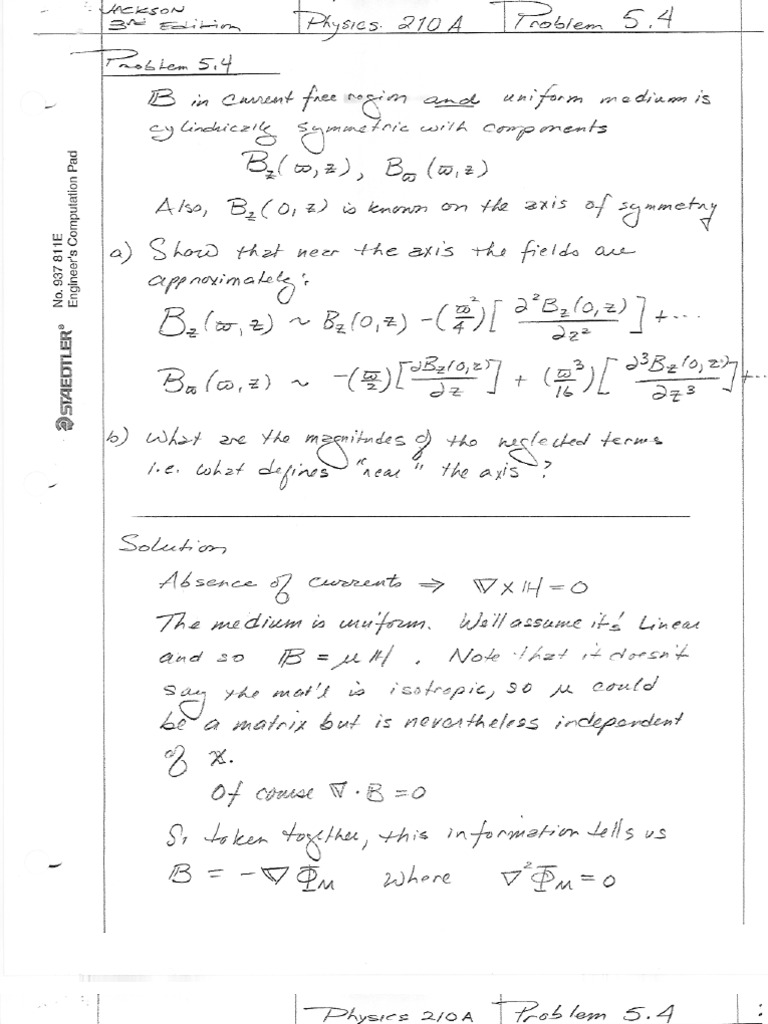 JACKSON
3rd Edition
Physics 210A
Problem 5.4
Problem 5.4
B in current free region and uniform medium is
cylindrically symmetric with components
B_z(ϖ,z), B_ϖ(ϖ,z)
Also, B_z(0,z) is known on the axis of symmetry
a) Show that near the axis the fields are
approximately:
B_z(ϖ,z) ~ B_z(0,z) - (ϖ²/4)[∂²B_z(0,z)/∂z²] + ...
B_ϖ(ϖ,z) ~ -(ϖ/2)[∂B_z(0,z)/∂z] + (ϖ³/16)[∂³B_z(0,z)/∂z³] + ...
b) What are the magnitudes of the neglected terms
i.e. what defines "near" the axis?
Solution
Absence of currents ⇒ ∇×H=0
The medium is uniform. We'll assume it's Linear
and so B = μH. Note that it doesn't
say the mat'l is isotropic, so μ could
be a matrix but is nevertheless independent
of x.
Of course ∇·B=0
So taken together, this information tells us
B = -∇Φ_M where ∇²Φ_M=0
No. 937 811E
Engineer's Computation Pad
STAEDTLER®
Physics 210A
Problem 5.4